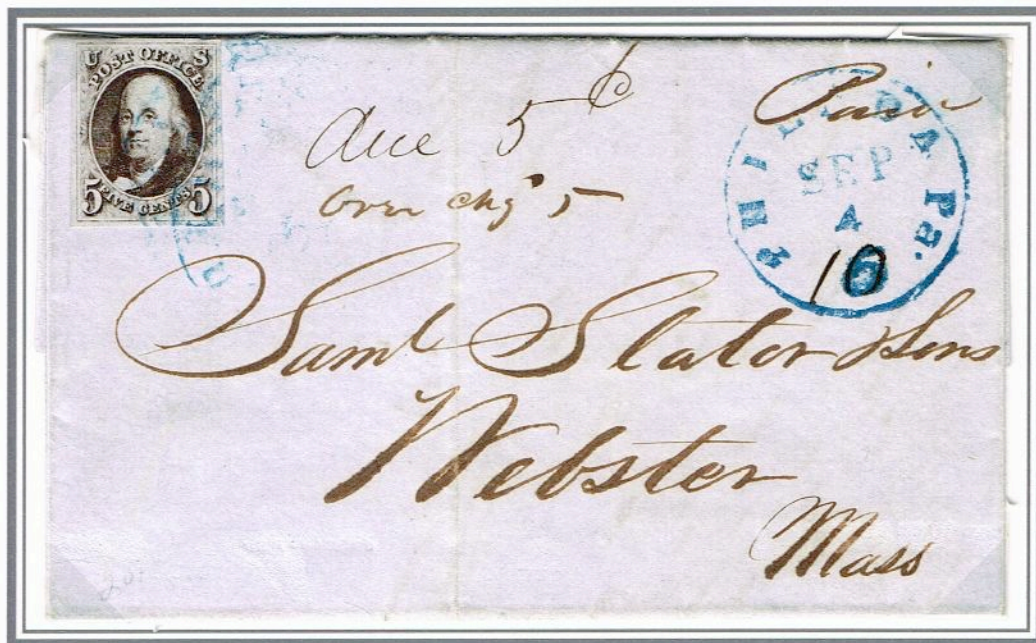 U S
POST OFFICE
5 FIVE CENTS 5
Due 5 c
Over chg 5
Paid
PHILADA Pa.
SEP
4
10
Saml Slater & Sons
Webster
Mass